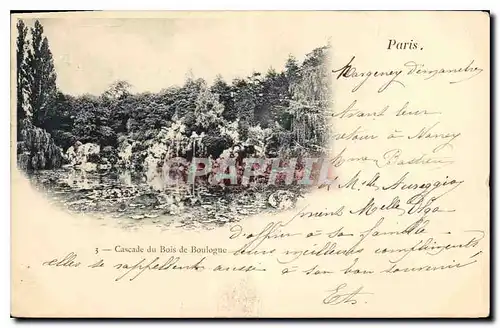 Paris.
Margency dimanche
Avant leur
retour à Nancy
Mme Bastien
& Mlle Nureggio
prient Mlle Olga
d'offrir à sa famille
leurs meilleurs compliments
elles se rappellent aussi à son bon souvenir
CARTHAGENE
3 — Cascade du Bois de Boulogne